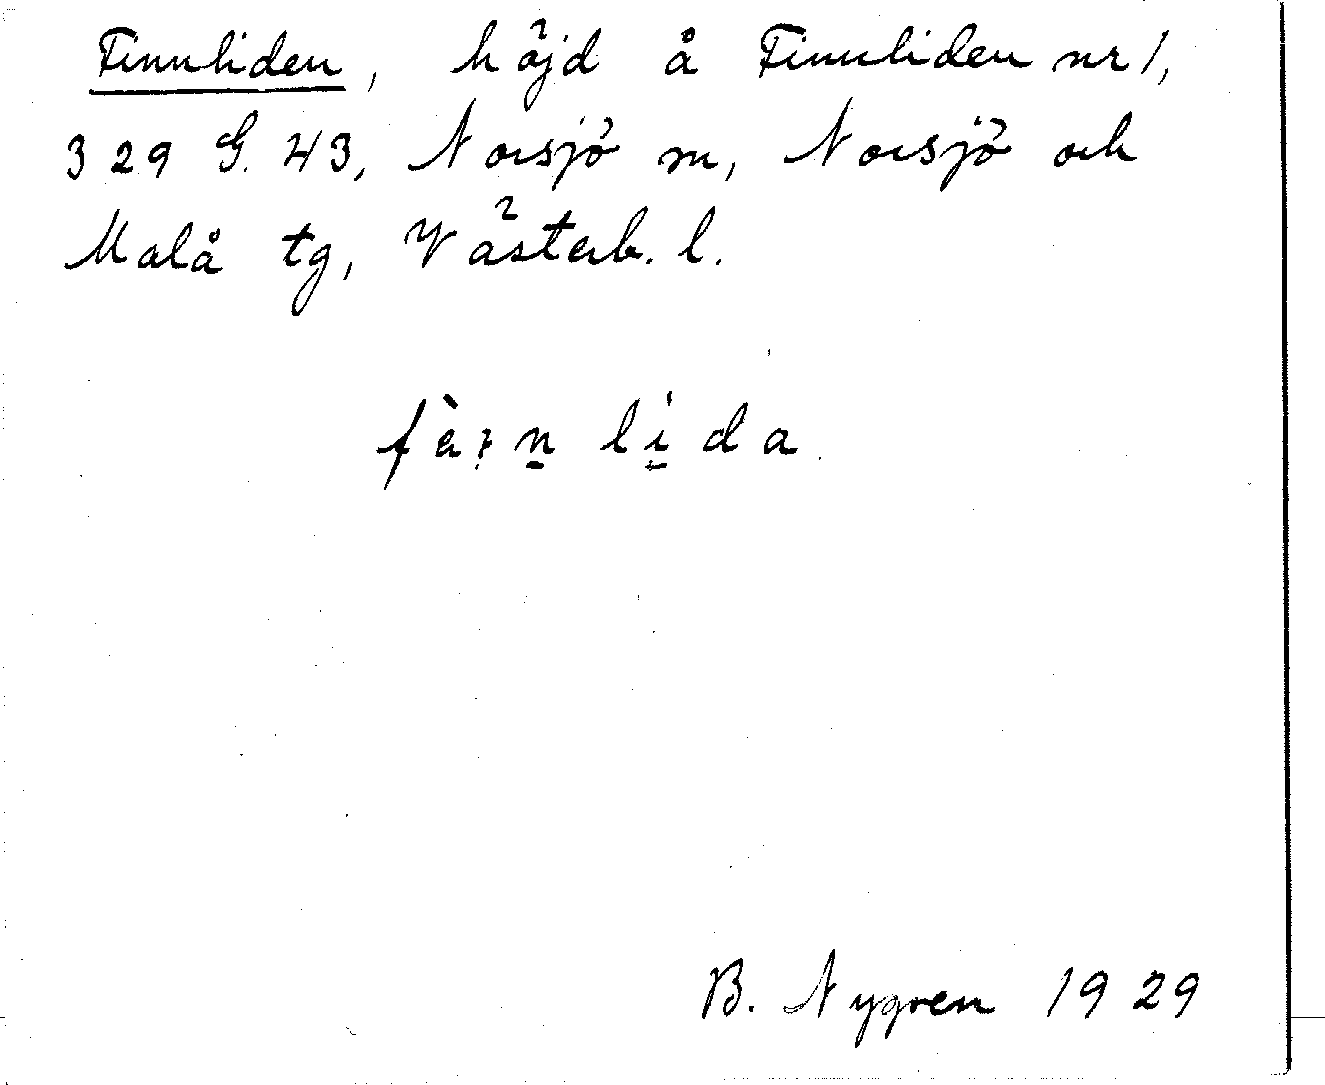 Finnliden, höjd å Finnliden nr 1,
329 G. 43, Norsjö m, Norsjö och
Malå tg, Västerb. l.
lida
B. Nygren 1929